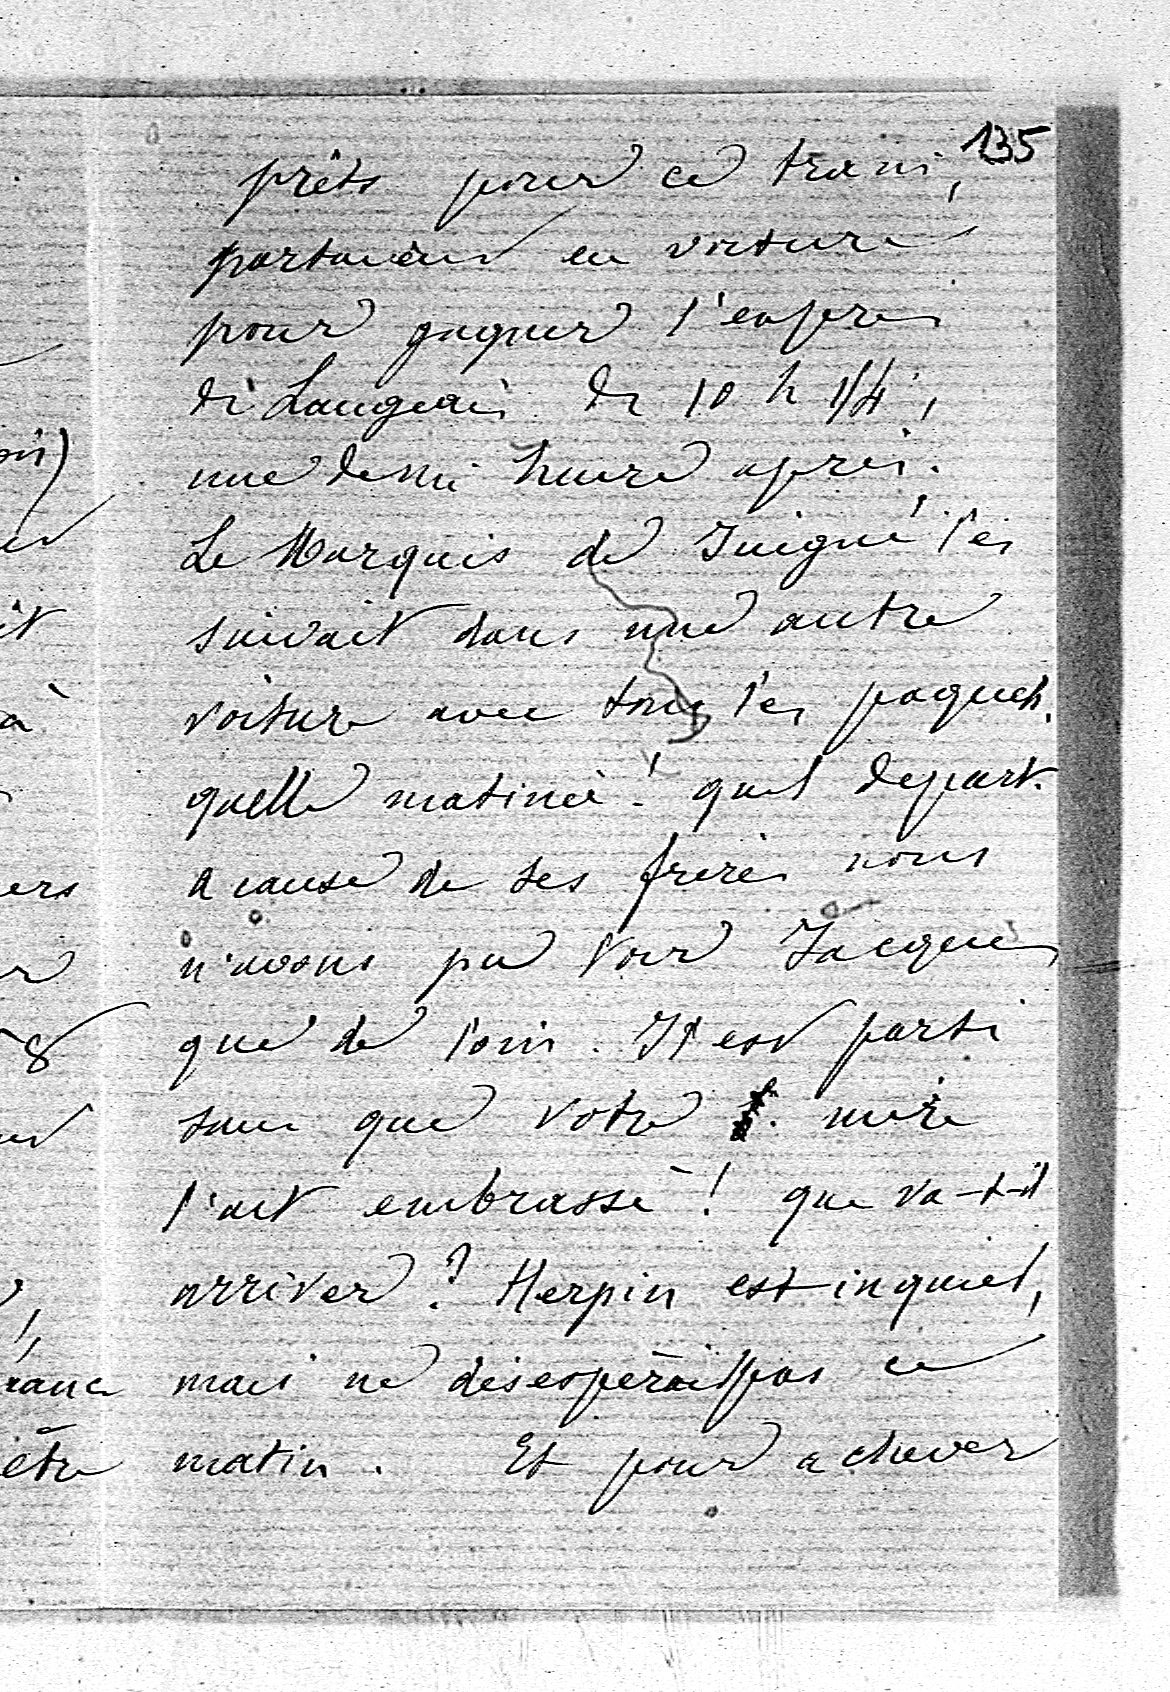 135
prêts pour ce train,
partaient en voiture
pour gagner l'express
de Langeais de 10 h 1/4,
une demi heure après.
Le Marquis de Juigné les
suivait dans une autre
voiture avec tous les paquets.
quelle matinée ! quel depart.
a cause de ses frères nous
n'avons pu voir Jacques
que de loin. Il est parti
sans que votre mère
l'ait embrassé ! que va-t-il
arriver ? Herpin est inquiet,
mais ne désespérait pas ce
matin. Et pour achever